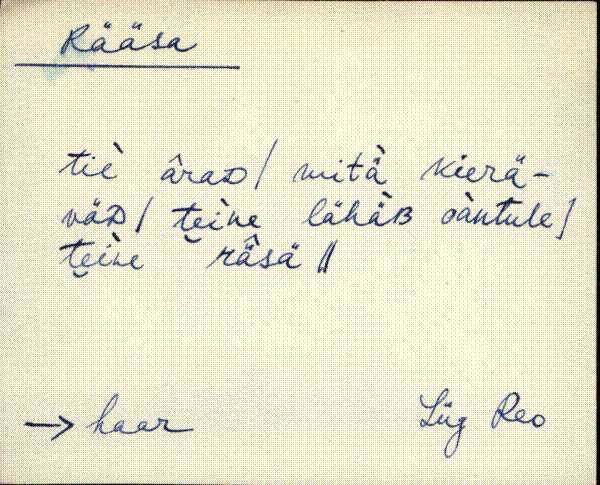 Rääsa
tiè âraD/ mità kierä-
väD/ tei̬ne lähäB oàntule/
tei̬ne râsä //
→ haar Lüg Reo